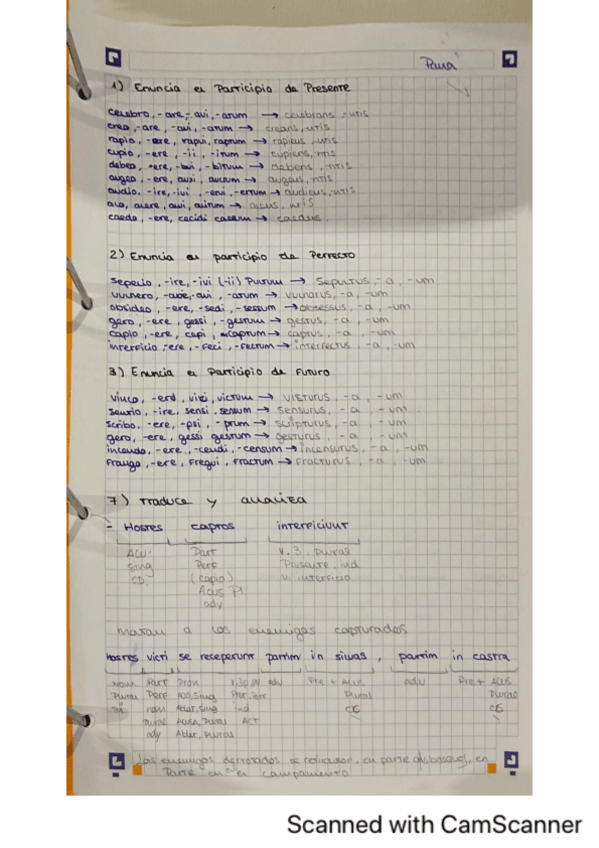 1) Enuncia el Participio de Presente
celebro, -are, -avi, -atum → celebrans, -ntis
creo, -are, -avi, -atum → creans, -ntis
rapio, -ere, rapui, raptum → rapiens, -ntis
cupio, -ere, -ii, -itum → cupiens, -ntis
debeo, -ere, -bui, -bitum → debens, -ntis
augeo, -ere, auxi, auctum → augens, -ntis
audio, -ire, -ivi, → audiens, -ntis
caedo, -ere, cecidi caesum →
2) Enuncia el participio de Perfecto
Sepelio, -ire, -ivi (-ii) Pultum → Sepultus, -a, -um
vulnero, -are, -avi, -atum → -a, -um
obsideo, -ere, -sedi, -sessum → obsessus, -a, -um
gero, -ere, gessi, -gestum → gestus, -a, -um
capio, -ere, cepi, captum → captus, -a, -um
interficio, -ere, -feci, -fectum → interfectus, -a, -um
3) Enuncia el Participio de Futuro
vinco, vici, victum → victurus, -a, -um
sentio, -ire, sensi, sensum → sensurus, -a, -um
Scribo, -ere, -psi, -ptum → scripturus, -a, -um
gero, -ere, gessi gestum → gesturus, -a, -um
incendo, -ere, -cendi, -censum → incensurus, -a, -um
Frango, -ere, Fregui, Fractum → Fracturus, -a, -um
7) Traduce y analiza
- Hostes captos interficiunt
Acu. Part V. 3. Plural
Sing Perf Presente, ind
CD. (capio) V. interficio
Acus Pl
adv
Matan a los enemigos capturados
Hostes victi se receperunt partim in silvas, partim in castra
Nom Part Pron adv Pre + Acus adv Pre + Acus
Plural Perf Plural Plural
nom Ablat, Sing ind CC CC
Plural Acusa, Plural ACT
Ablat, Plural
Los enemigos derrotados se retiraron, en parte al bosque, en
parte en el campamento
Scanned with CamScanner